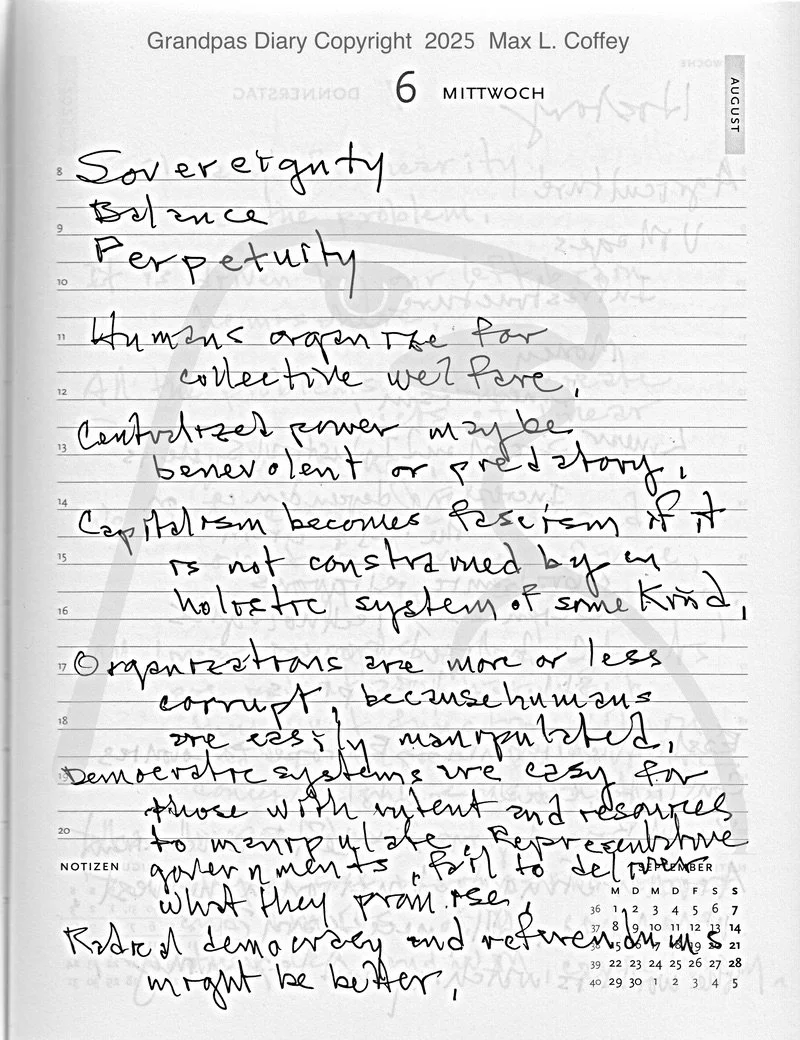 Grandpas Diary Copyright 2025 Max L. Coffey
6 MITTWOCH
AUGUST
8 Sovereignty
Balance
9
Perpetuity
10
11 Humans organize for
collective welfare.
12
Centralized power may be
13
benevolent or predatory.
14
Capitalism becomes fascism if it
15 is not constrained by an
16 holostic system of some kind.
17 Organizations are more or less
corrupt, because humans
18
are easily manipulated.
19 Democratic systems are easy for
those with intent and resources
20 to manipulate. Representative
NOTIZEN governments, fail to deliver
what they promise.
Radical democracy and referendums
might be better.
SEPTEMBER
M D M D F S S
36 1 2 3 4 5 6 7
37 8 9 10 11 12 13 14
38 15 16 17 18 19 20 21
39 22 23 24 25 26 27 28
40 29 30 1 2 3 4 5